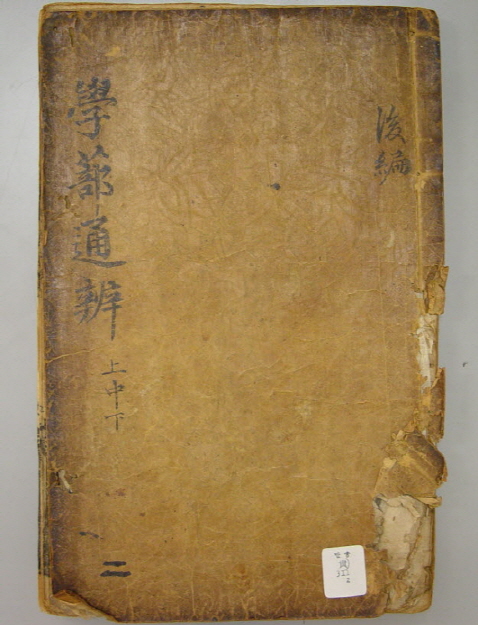 後編
學蔀通辨
上中下
二